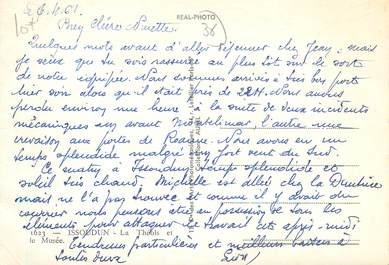 le 6.4.61.
REAL-PHOTO
107
36
Bien chère Nanette
Quelques mots avant d'aller déjeuner chez Jean, mais
je veux que tu sois rassurée au plus tôt sur le sort
de notre équipée. Nous sommes arrivés à très bon port
hier soir alors qu'il était près de 22H. Nous avons
perdu environ une heure à la suite de deux incidents
mécaniques un avant Montelimar, l'autre une
crevaison aux portes de Roanne. Nous avons eu un
temps splendide malgré un fort vent du Sud.
Ce matin à Issoudun temps splendide et
soleil très chaud. Michelle est allée chez la Directrice
mais ne l'a pas trouvée et comme il y avait du
courrier nous pensons être en possession de tous les
éléments pour attaquer le travail cet après-midi
1623 — ISSOUDUN - La Théols et
le Musée.
Tendresses particulières et meilleurs baisers à
toutes deux